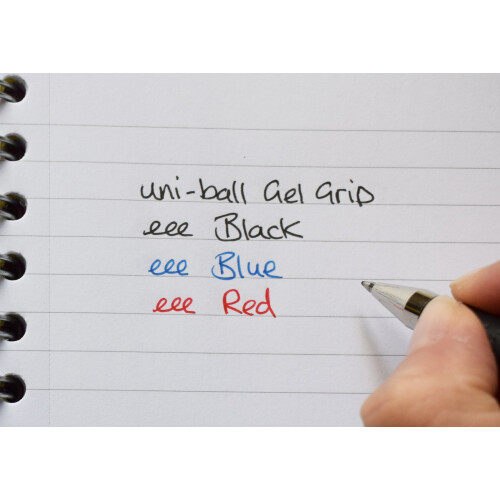 uni-ball Gel Grip
eee Black
eee Blue
eee Red